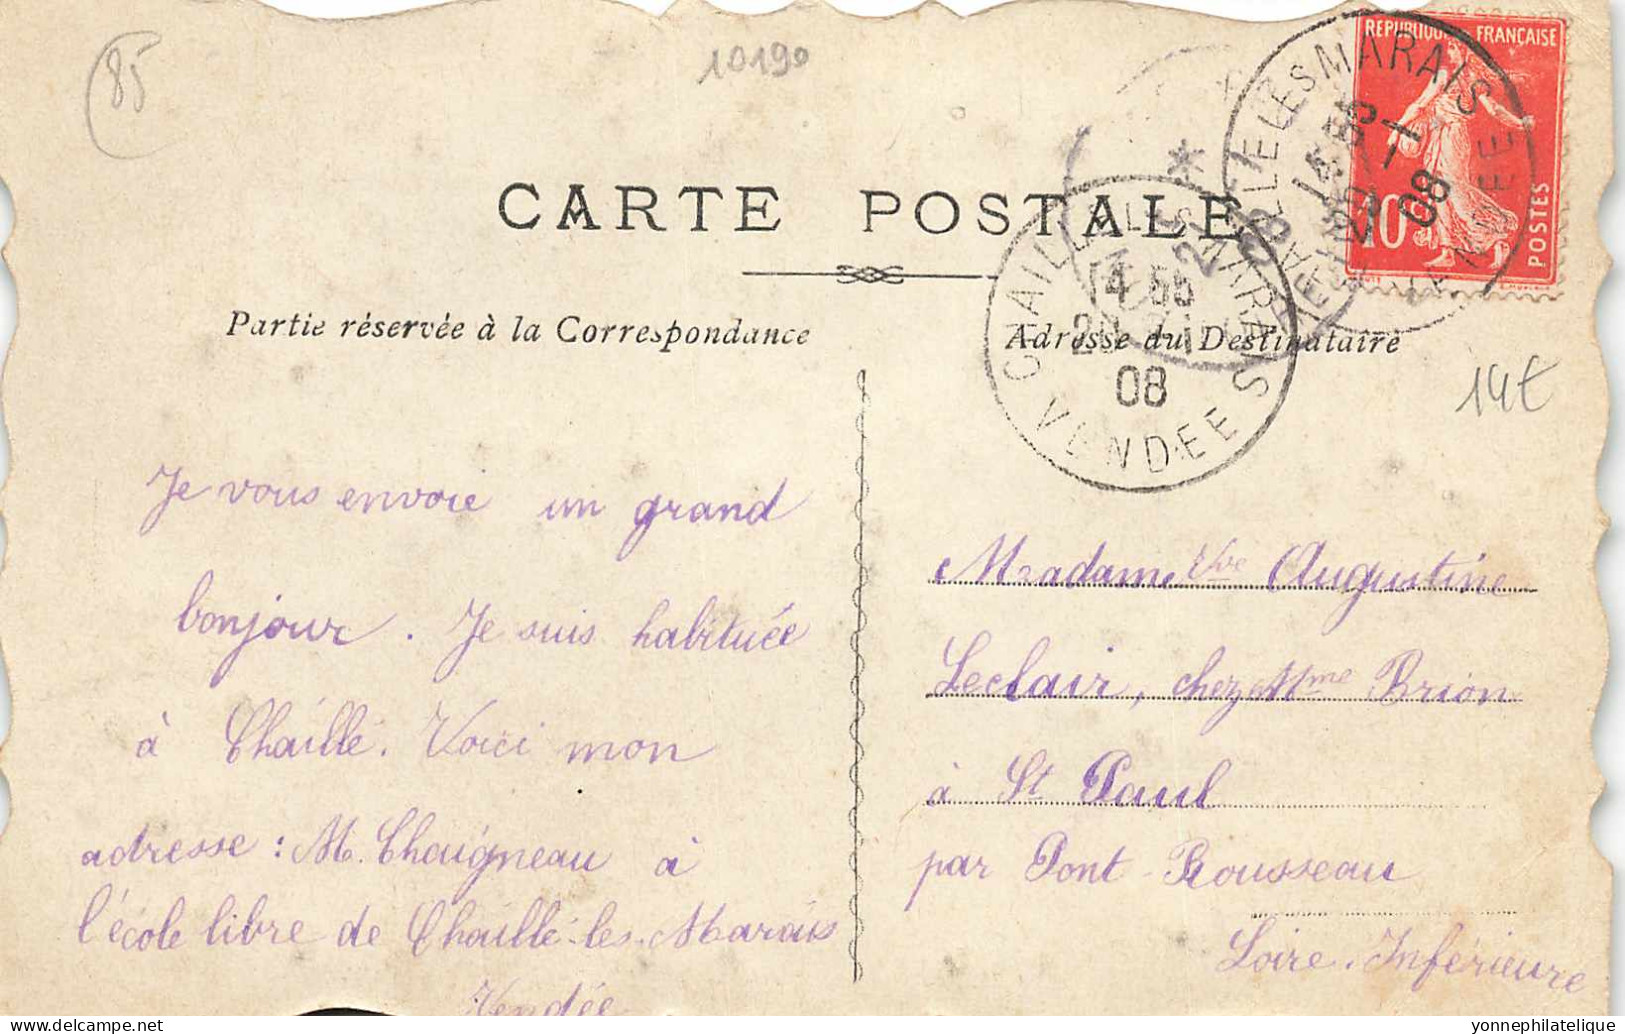 85
10190
REPUBLIQUE FRANÇAISE
10
POSTES
CHAILLE LES MARAIS
14 55
20 -1
08
VENDEE
CARTE POSTALE
CHAILLE LES MARAIS
14 55
20 -1
08
VENDEE
Partie réservée à la Correspondance
Adresse du Destinataire
14€
Je vous envoie un grand
bonjour. Je suis habituée
à Chaillé. Voici mon
adresse : M. Chaigneau à
l'école libre de Chaillé-les-Marais
Vendée
Madame Vve Augustine
Leclair, chez Mme Brion
à St Paul
par Pont-Rousseau
Loire-Inférieure
yonnephilatelie © delcampe.net